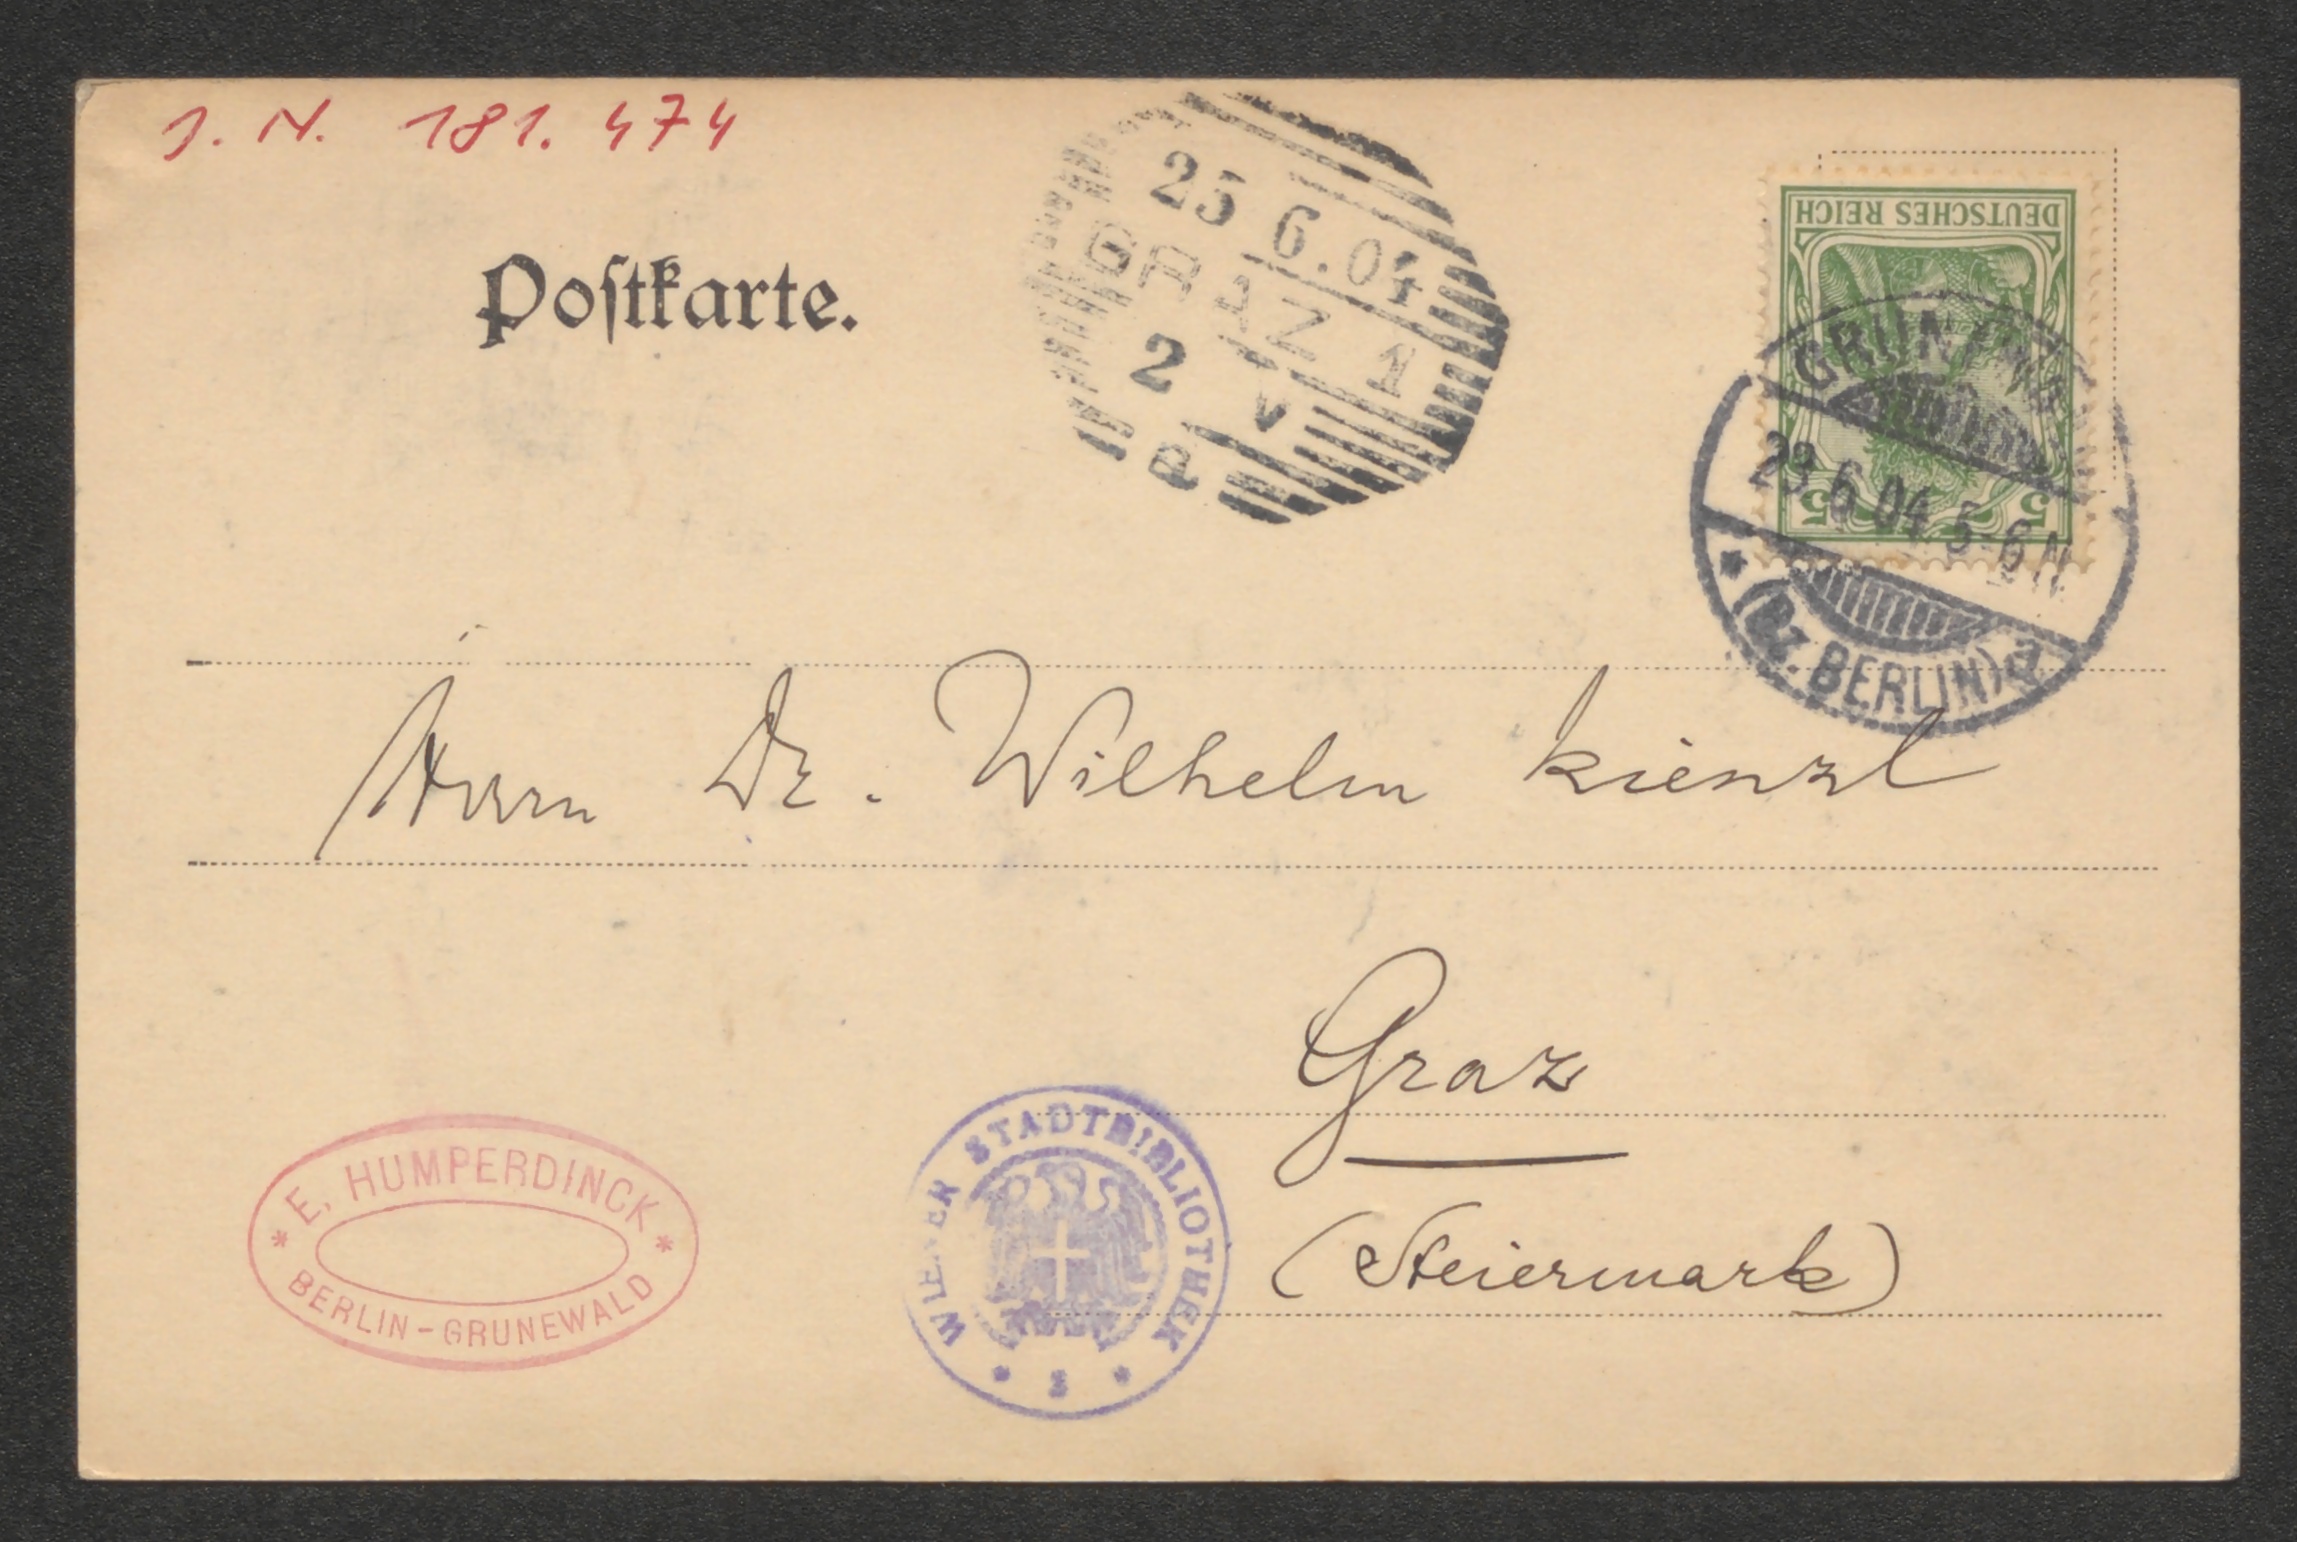 J. N. 181.474
Postkarte.
25 6.04
GRAZ 1
2 V
a
DEUTSCHES REICH
5 5
23.6.04 5-6 N
(Bz. BERLIN) a
Herrn Dr. Wilhelm Kienzl
Graz
(Steiermark)
E. HUMPERDINCK
BERLIN-GRUNEWALD
WIENER STADTBIBLIOTHEK